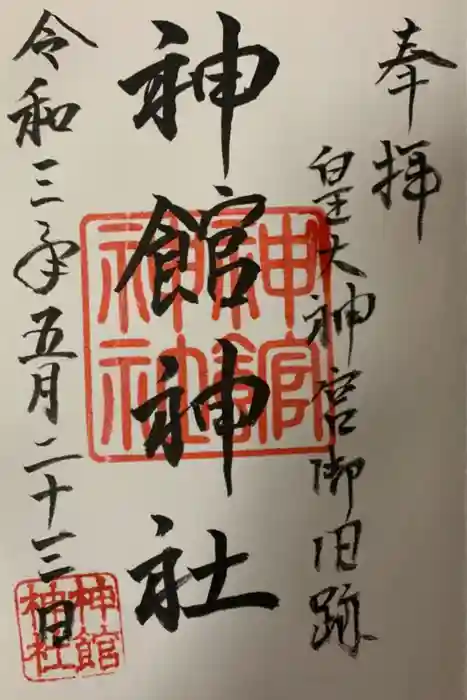 奉拝
皇大神宮御旧跡
神館神社
令和三年五月二十三日
神館神社
神館神社